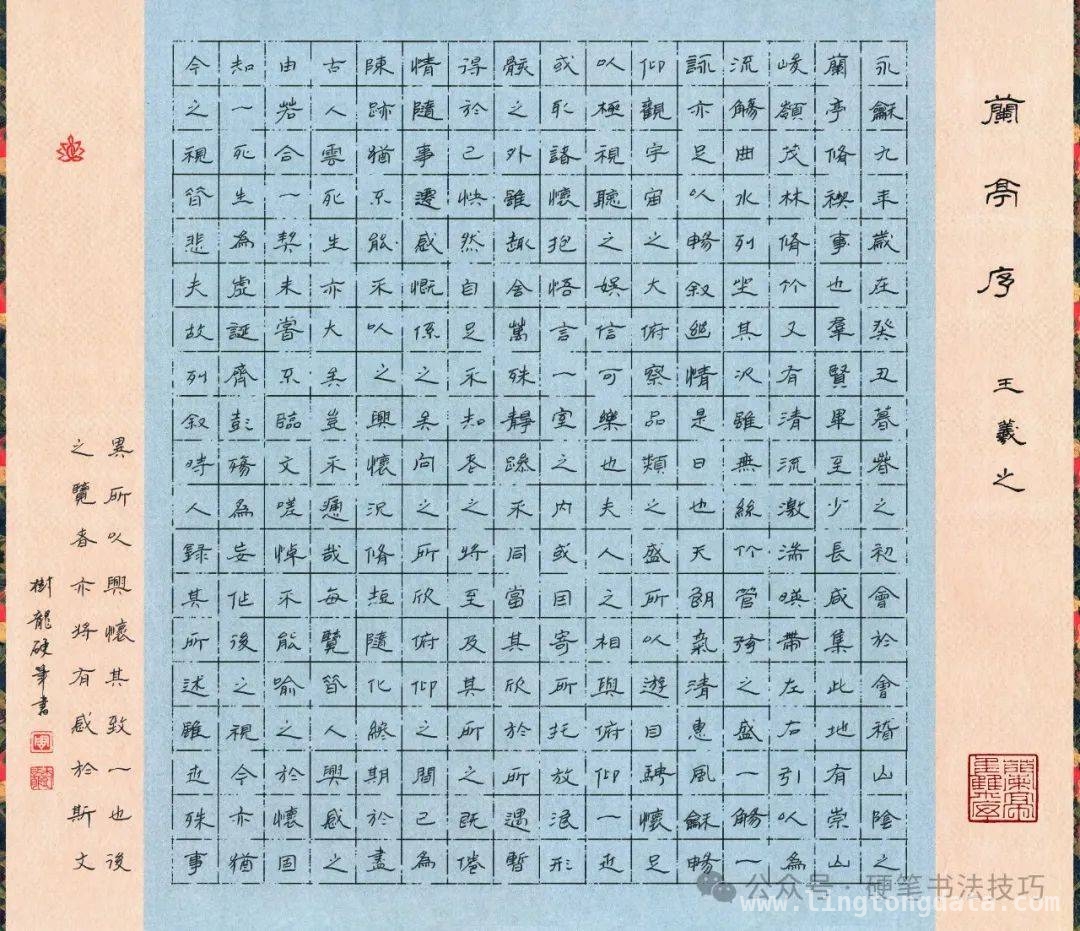 蘭亭序 王羲之
永龢九年歲在癸丑暮春之初會於會稽山陰之
蘭亭脩禊事也羣賢畢至少長咸集此地有崇山
峻嶺茂林脩竹又有清流激湍暎帶左右引以為
流觴曲水列坐其次雖無絲竹管弦之盛一觴一
詠亦足以暢敘幽情是日也天朗氣清惠風龢暢
仰觀宇宙之大俯察品類之盛所以遊目騁懷足
以極視聽之娛信可樂也夫人之相與俯仰一世
或取諸懷抱悟言一室之內或因寄所托放浪形
骸之外雖趣舍萬殊靜躁不同當其欣於所遇暫
得於己怏然自足不知老之將至及其所之既倦
情隨事遷感慨係之矣向之所欣俯仰之間已為
陳跡猶不能不以之興懷況脩短隨化終期於盡
古人雲死生亦大矣豈不痛哉每覽昔人興感之
由若合一契未嘗不臨文嗟悼不能喻之於懷固
知一死生為虛誕齊彭殤為妄作後之視今亦猶
今之視昔悲夫故列敘時人錄其所述雖世殊事
異所以興懷其致一也後
之覽者亦將有感於斯文
樹龍硬筆書
公众号·硬笔书法技巧
www.lingtongdata.com